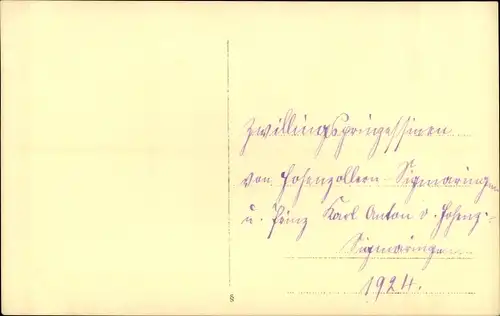 Zwillingsprinzessinen
von Hohenzollern-Sigmaringen
u. Prinz Karl Anton v. Hohenz.-
Sigmaringen
1924.
§